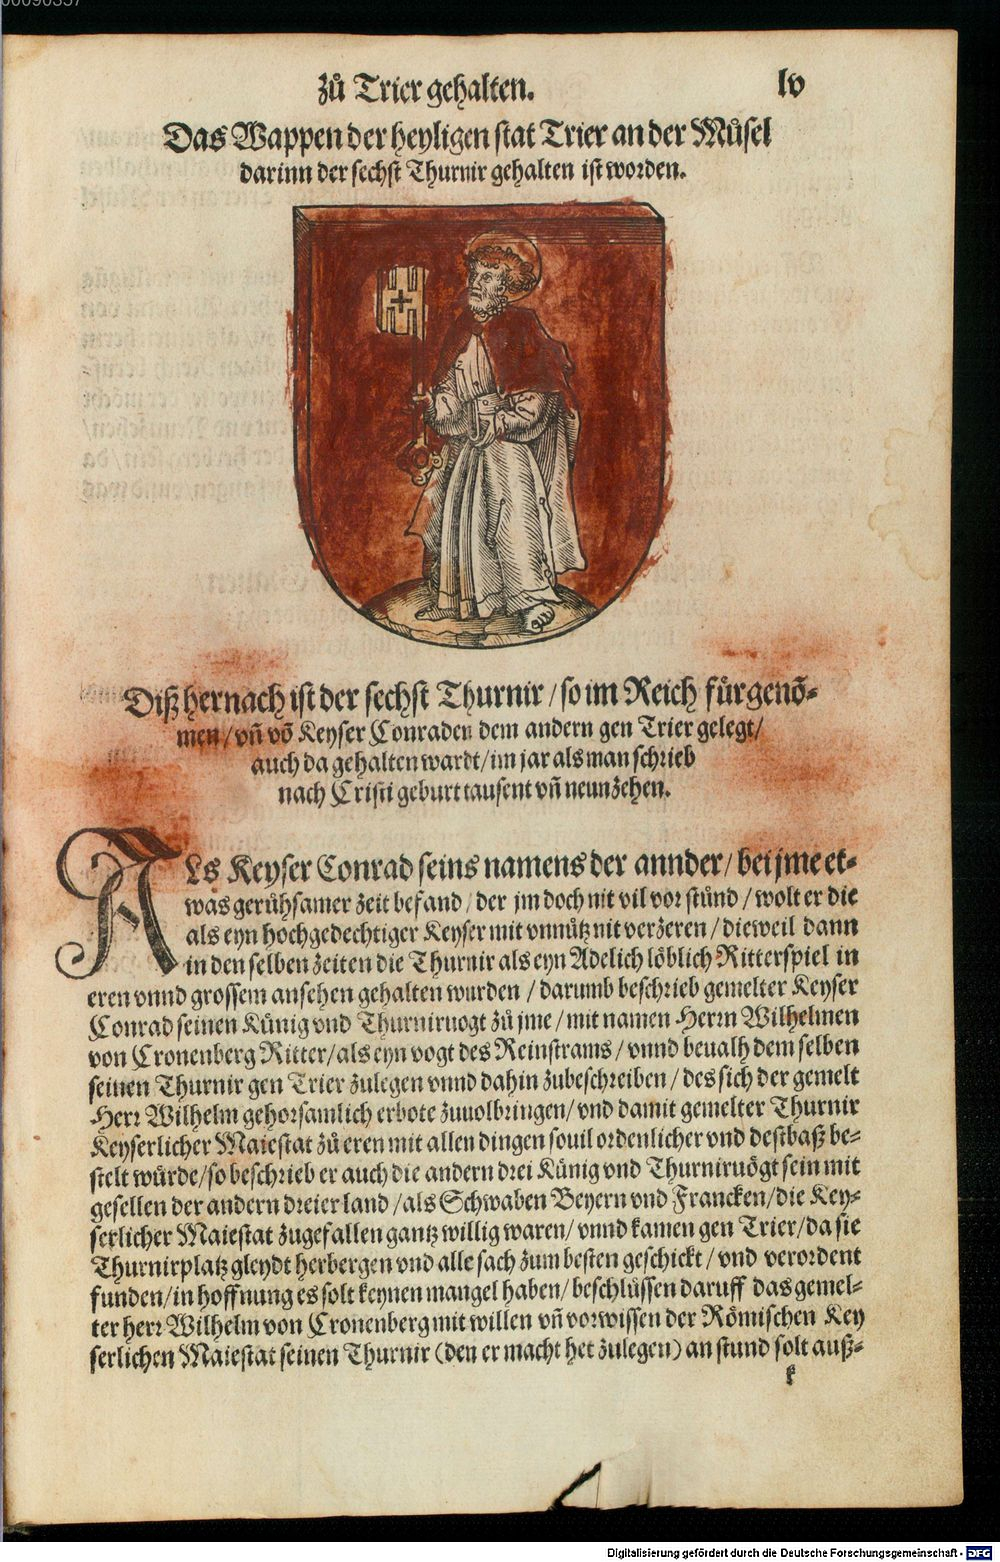 00090357
zů Trier gehalten.
lv
Das Wappen der heyligen stat Trier an der Můsel
darinn der sechst Thurnir gehalten ist worden.
Diß hernach ist der sechst Thurnir / so im Reich fürgenō-
men / vñ vō Keyser Conraden dem andern gen Trier gelegt /
auch da gehalten wardt / im jar als man schrieb
nach Cristi geburt tausent vñ neunzehen.
ALs Keyser Conrad seins namens der annder / bei jme et-
was gerůhsamer zeit befand / der jm doch nit vil vor stůnd / wolt er die
als eyn hochgedechtiger Keyser mit vnnütz nit verzeren / dieweil dann
in den selben zeiten die Thurnir als eyn Adelich löblich Ritterspiel in
eren vnnd grossem ansehen gehalten wurden / darumb beschrieb gemelter Keyser
Conrad seinen Künig vnd Thurniruogt zů jme / mit namen Herrn Wilhelmen
von Cronenberg Ritter / als eyn vogt des Reinstrams / vnnd beualh dem selben
seinen Thurnir gen Trier zulegen vnnd dahin zubeschreiben / des sich der gemelt
Herr Wilhelm gehorsamlich erbote zuuolbringen / vnd damit gemelter Thurnir
Keyserlicher Maiestat zů eren mit allen dingen souil ordenlicher vnd destbaß be-
stelt würde / so beschrieb er auch die andern drei Künig vnd Thurniruögt sein mit
gesellen der andern dreier land / als Schwaben Beyern vnd Francken / die Key-
serlicher Maiestat zugefallen gantz willig waren / vnnd kamen gen Trier / da sie
Thurnirplatz gleydt herbergen vnd alle sach zum besten geschickt / vnd verordent
funden / in hoffnung es solt keynen mangel haben / beschlüssen daruff das gemel-
ter herr Wilhelm von Cronenberg mit willen vñ vorwissen der Römischen Key
serlichen Maiestat seinen Thurnir (den er macht het zulegen) an stund solt auß-
k
Digitalisierung gefördert durch die Deutsche Forschungsgemeinschaft - DFG